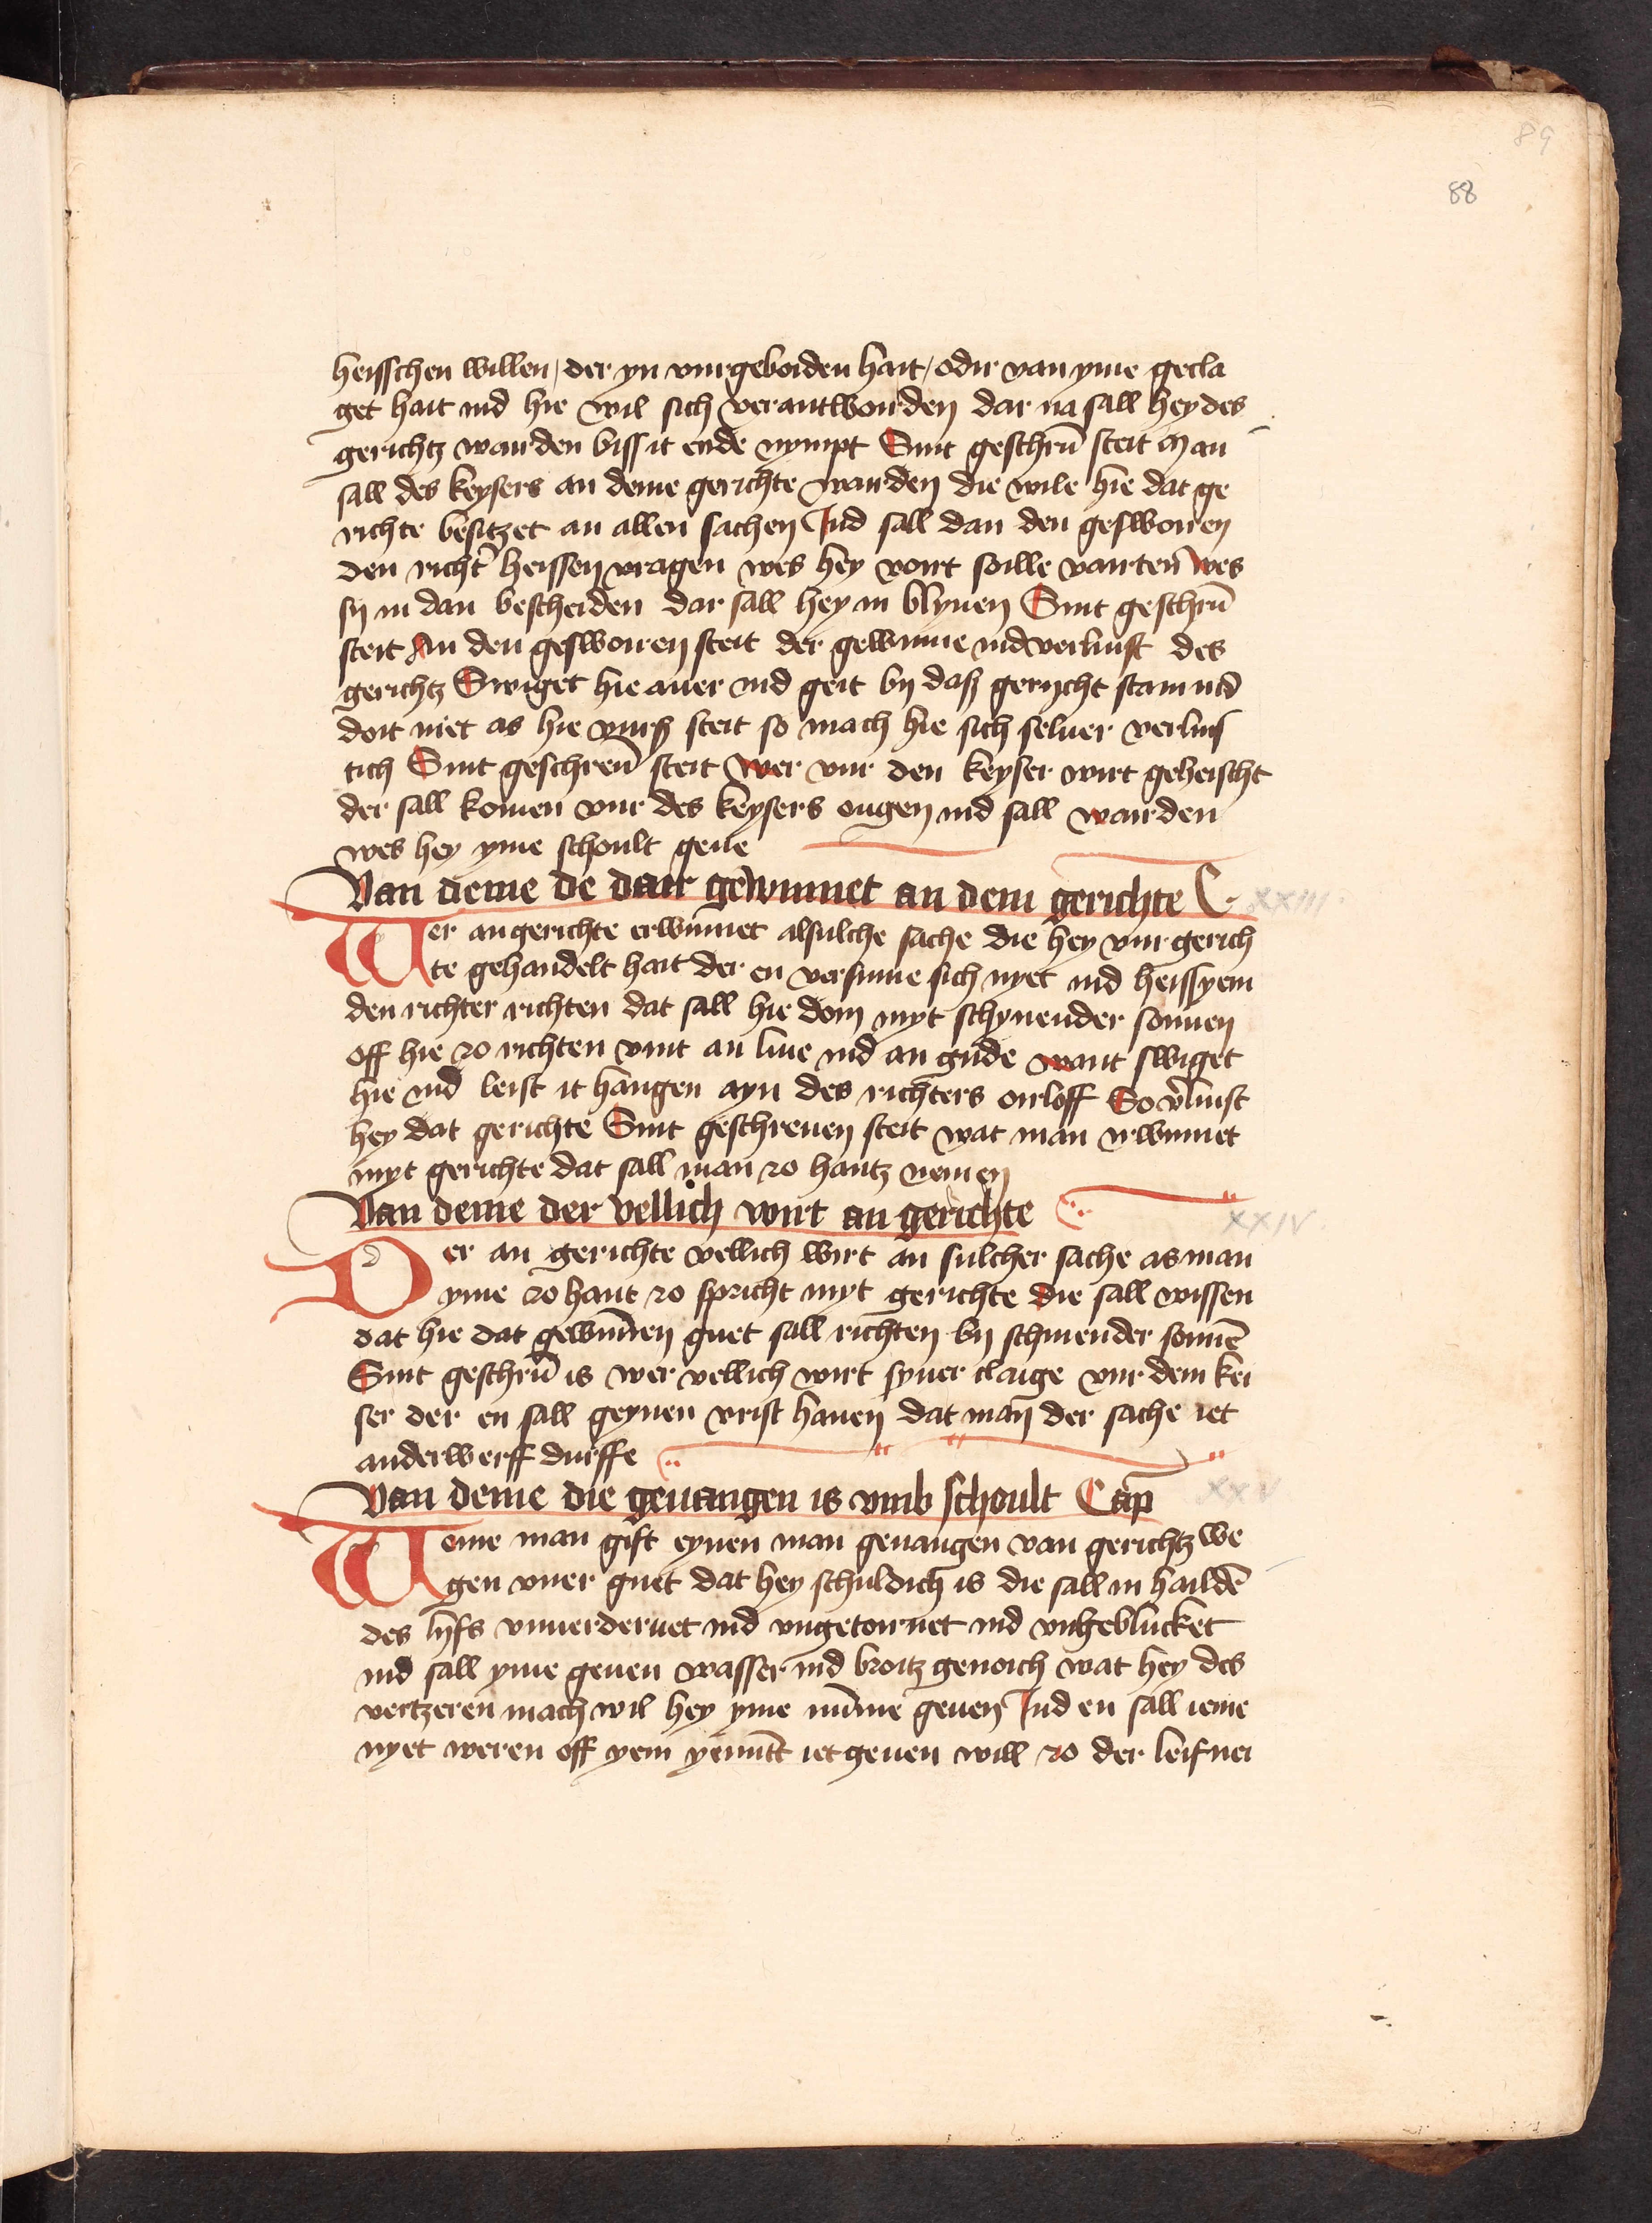 89
88
heisschen willen / der yn vurgeboiden hait / odir van yme gecla
get hait ind hie wil sich verantwourden dar na sall hey des
gerichtz wairden biss it ende nympt Sint geschrū steit Man
sall des keysers an deme gerichte warden die wile hie dat ge
richte besitzet an allen sachen Ind sall dan den geswoiren
den richt' heissen vragen wes hey vort soille wes
sy in dan bescheiden dar sall hey in blyuen Sint geschrū
steit An den geswoiren steit der gewinne ind verluist des
gerichtz Swiget hie auer ind geit by daß gerycht stain ind
doit niet as hie steit so mach hie sich seluer verluis
tich Sint geschreuē steit Wer vur den keyser wirt geheischt
der sall komen vur des keysers ougen ind sall wairden
wes hey yme schoult geue
Van deme de dair gewinnet an dem gerichte C. XXIII
Wer an gerichte erwinnet alsulche sache die hey vur gerich
te gehandelt hait der en versume sich nyet ind heiss yem
den richter richten dat sall hie doin myt schynender sonnen
off hie zo richten vmt an liue ind an gude want swiget
hie ind leist it hangen ayn des richters oirloff So v'luist
hey dat gerichte Sint geschreuen steit wat man irwinnet
myt gerichte dat sall man zo hantz nemen
Van deme der vellich wirt an gerichte XXIV
Der an gerichte vellich wirt an sulcher sache as man
yme zo hant zo spricht myt gerichte die sall wissen
dat hie dat gewūnen guet sall richten by schinender sonnē
Sint geschrū is wer vellich wirt syner claige vur dem kei
ser der en sall geynen vrist hauen dat man der sache iet
anderwerff durffe
Van deme die geuangen is vmb schoult Cap XXV
Weme man gift eynen man geuangen van gerichtz we
gen vuer guet dat hey schuldich is die sall in haildē
des lyfs vnuerderuet ind vngetornet ind vngeblucket
ind sall yme geuen wasser ind broitz genoich wat hey des
vertzeren mach wil hey yme nūme geuen Ind en sall ieme
nyet weren off yem yemātt iet geuen will zo der leifnei